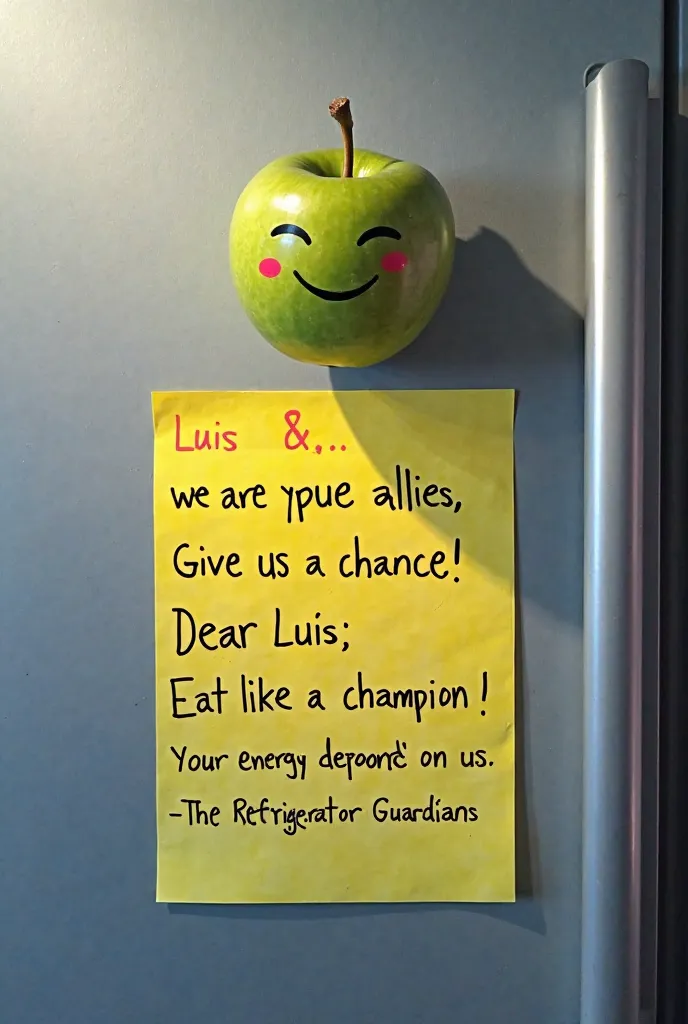 Luis &,..
we are ypue allies,
Give us a chance!
Dear Luis;
Eat like a champion!
Your energy on us.
-The Refrigerator Guardians